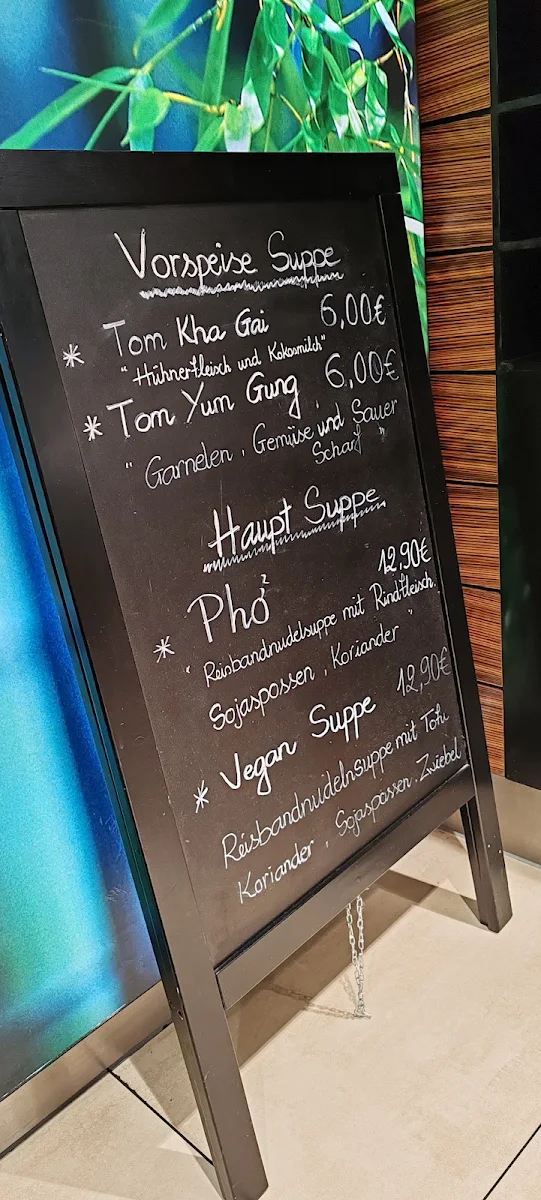 Vorspeise Suppe
* Tom Kha Gai 6,00€
"Hühnerfleisch und Kokosmilch"
* Tom Yum Gung 6,00€
"Garnelen, Gemüse und Sauer
Scharf"
Haupt Suppe
* Phở 12,90€
"Reisbandnudelsuppe mit Rindfleisch.
Sojaspossen, Koriander"
* Vegan Suppe 12,90€
Reisbandnudelnsuppe mit Tofu
Koriander, Sojaspossen. Zwiebel